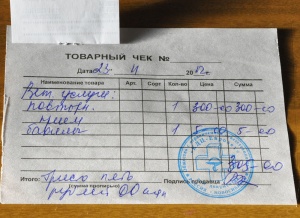 ТОВАРНЫЙ ЧЕК №
Дата 23 11 20 г.
Наименование товара Арт. Сорт Кол-во Цена Сумма
Вет услуги:
повторн. 1 300-00 300-00
прием
бахилы 1 5-00 5-00
305-00
Итого: Триста пять Подпись продавца
рублей 00 коп
(сумма прописью)